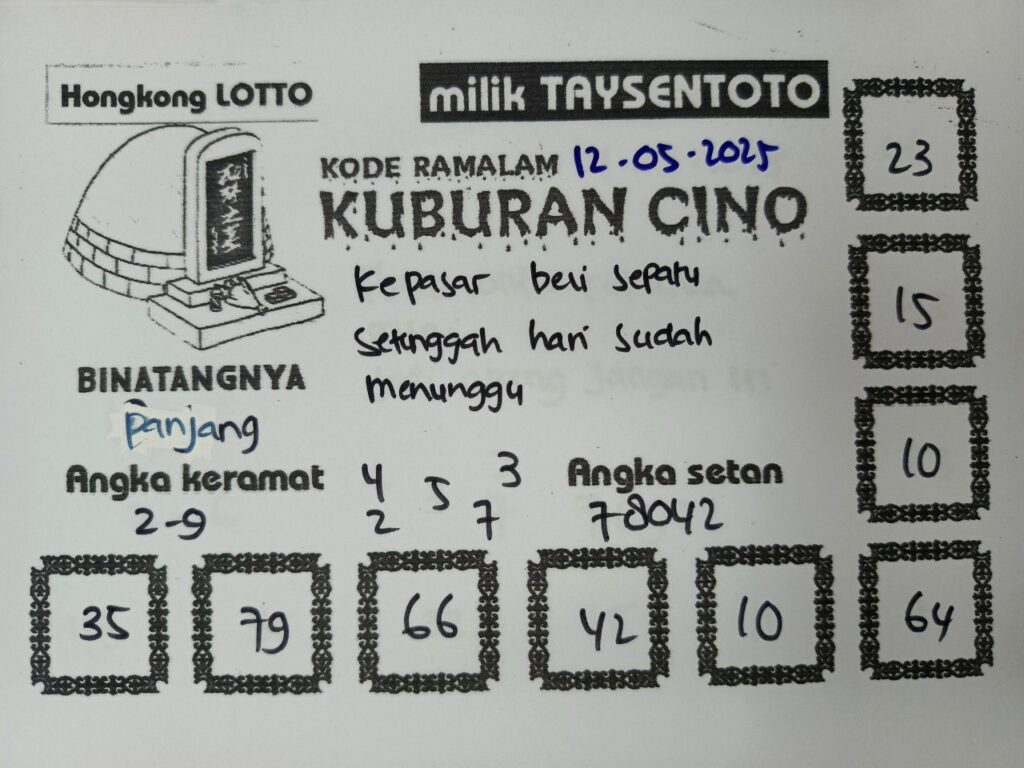 Hongkong LOTTO
milik TAYSENTOTO
KODE RAMALAM 12.05.2025
KUBURAN CINO
kepasar beli sepatu
setunggah hari sudah
menunggu
BINATANGNYA
Panjang
Angka keramat
2-9
4 3
5
2 7
Angka setan
78042
23
15
10
35 79 66 42 10 64